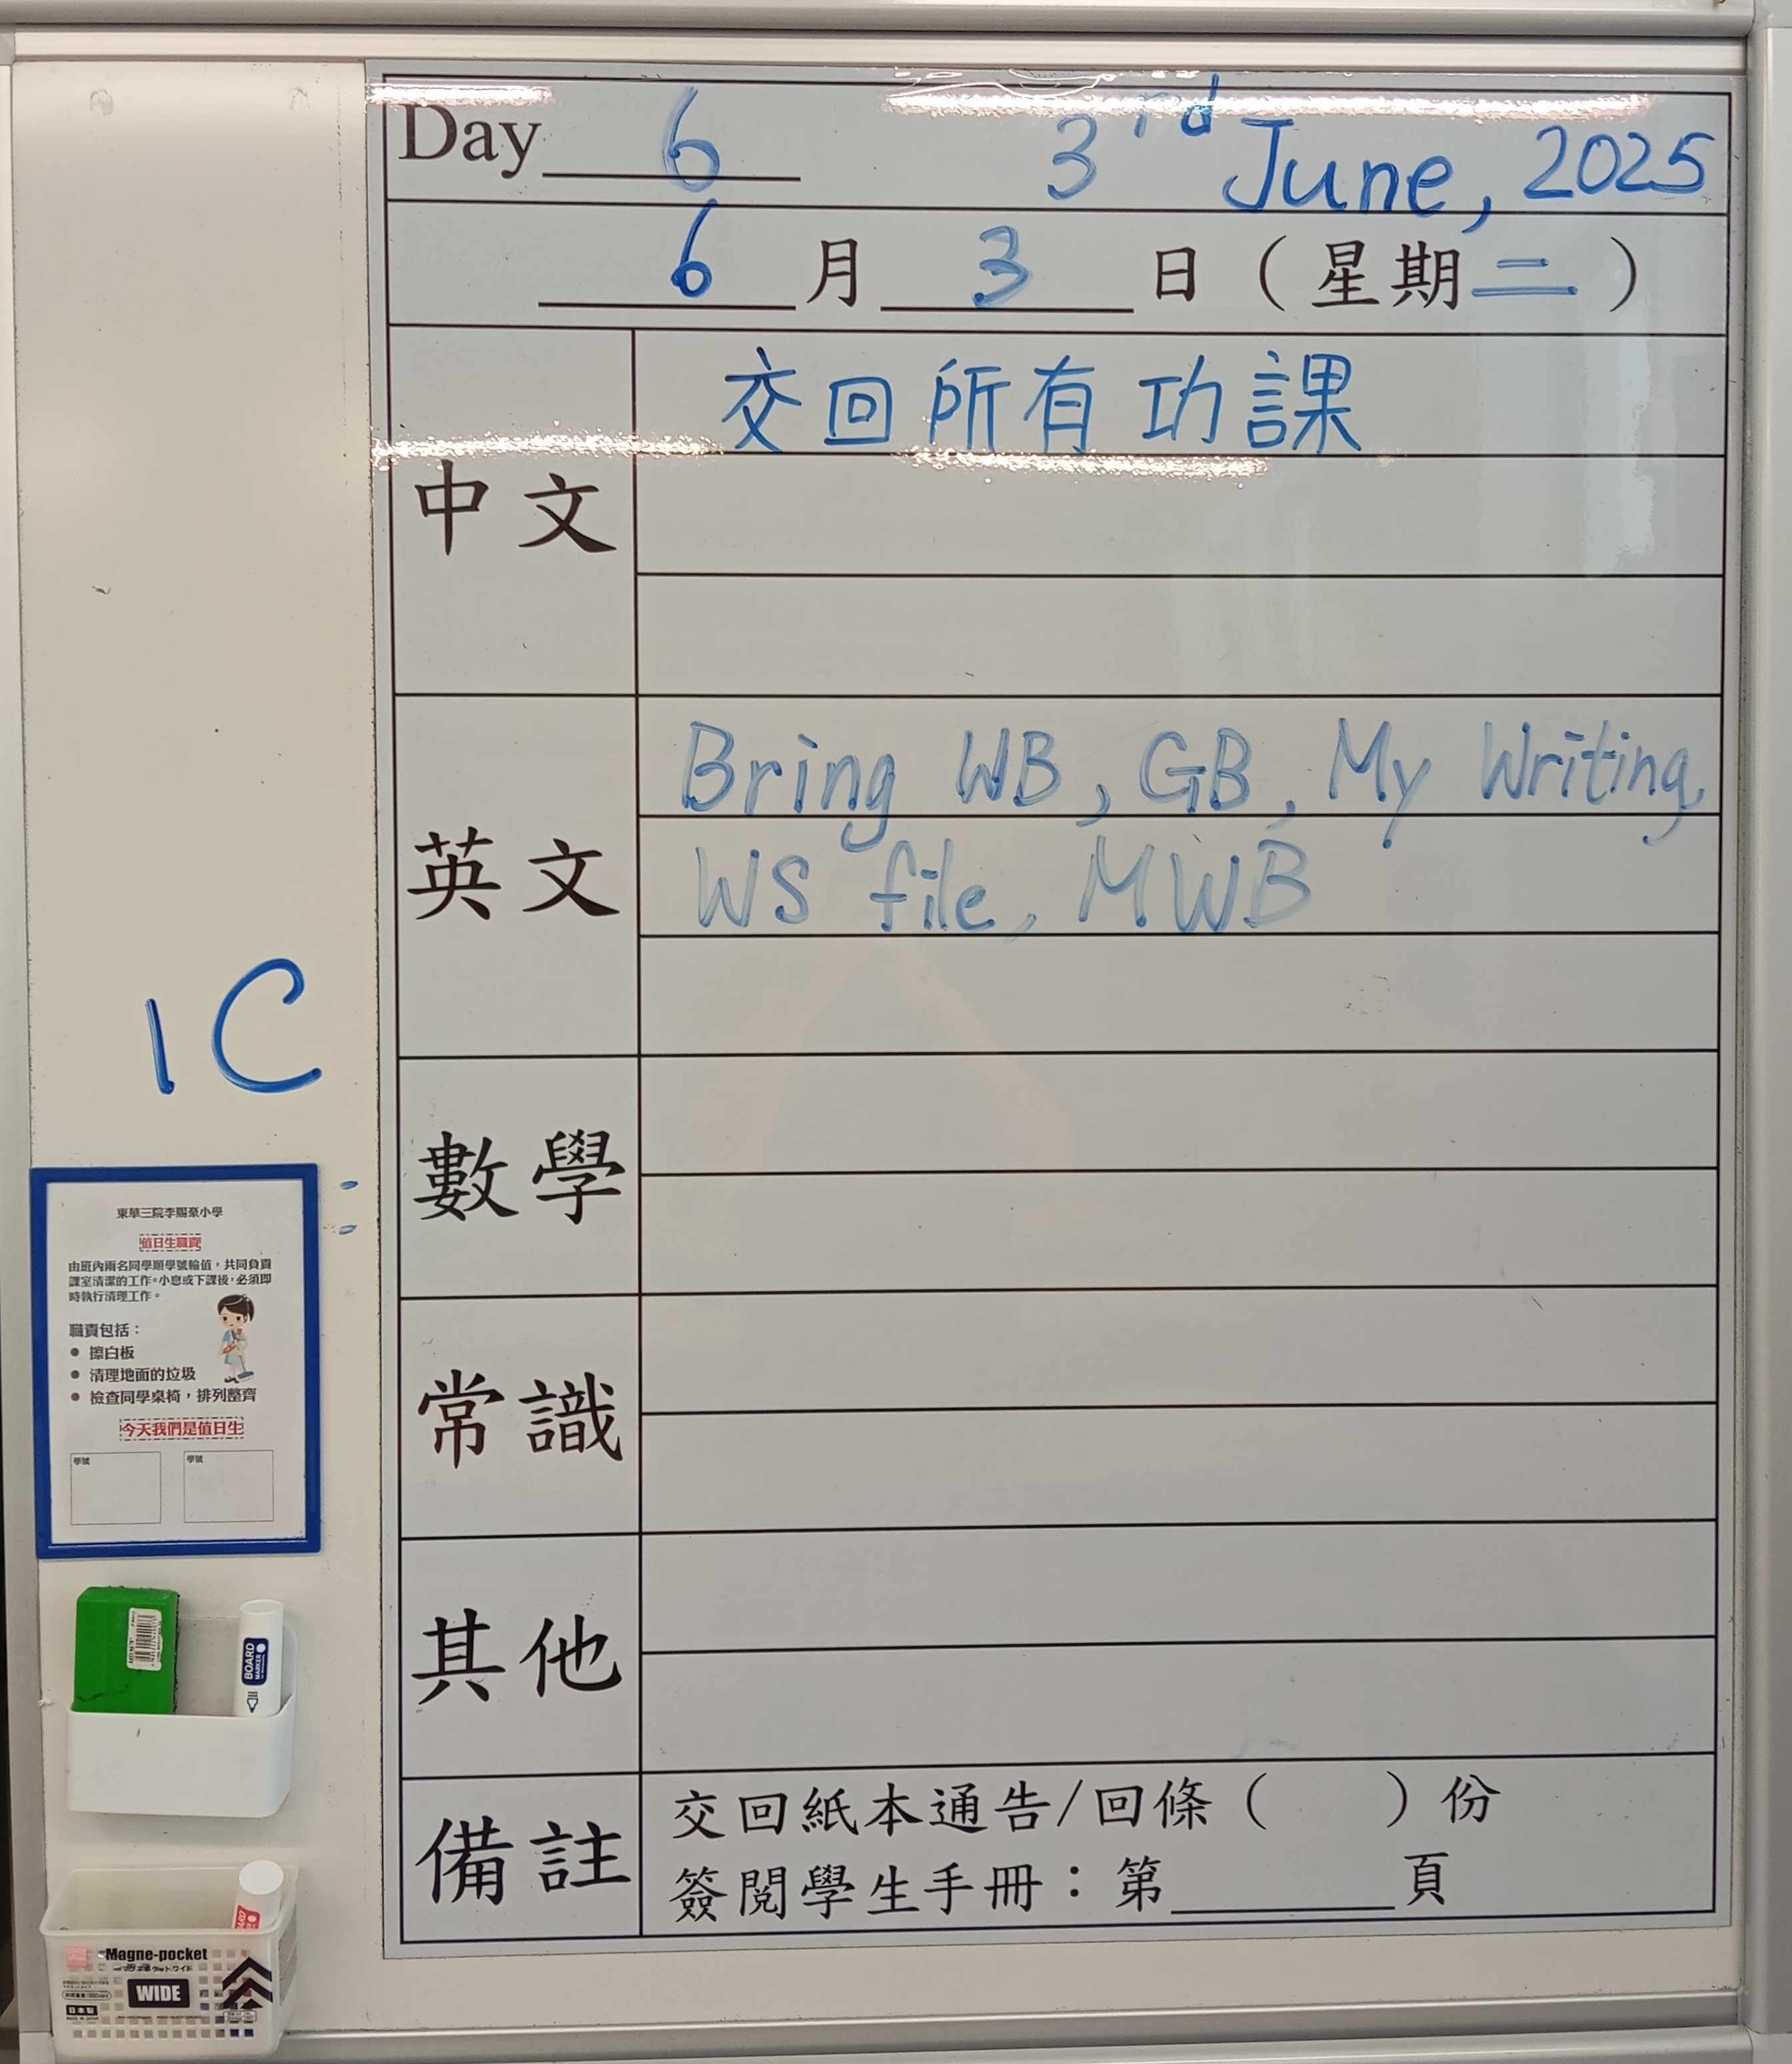 Day 6 3rd June, 2025
6 月 3 日（星期二）
中文
交回所有功課
英文
Bring WB, GB, My Writing,
WS file, MWB
數學
常識
其他
備註
交回紙本通告/回條（ ）份
簽閱學生手冊：第______頁
1C
東華三院李賜豪小學
值日生職責
由班內兩名同學順學號輪值，共同負責
課室清潔的工作。小息或下課後，必須即
時執行清理工作。
職責包括：
● 擦白板
● 清理地面的垃圾
● 檢查同學桌椅，排列整齊
今天我們是值日生
學號 學號
BOARD
MARKER
Magne-pocket
WIDE
日本製